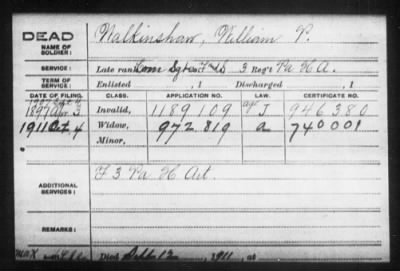 DEAD
NAME OF SOLDIER:
Walkinshaw, William P.
SERVICE:
Late rank Com Sgt 3 Reg't Pa H A.
TERM OF SERVICE:
Enlisted , 1 Discharged , 1
DATE OF FILING. CLASS. APPLICATION NO. LAW. CERTIFICATE NO.
1897 Apr 3 Invalid, 1189109 J 946380
1911 Oct 4 Widow, 972819 a 740001
Minor,
ADDITIONAL SERVICES:
F 3 Pa H Art.
REMARKS:
Died Sept 12 , 1911, at